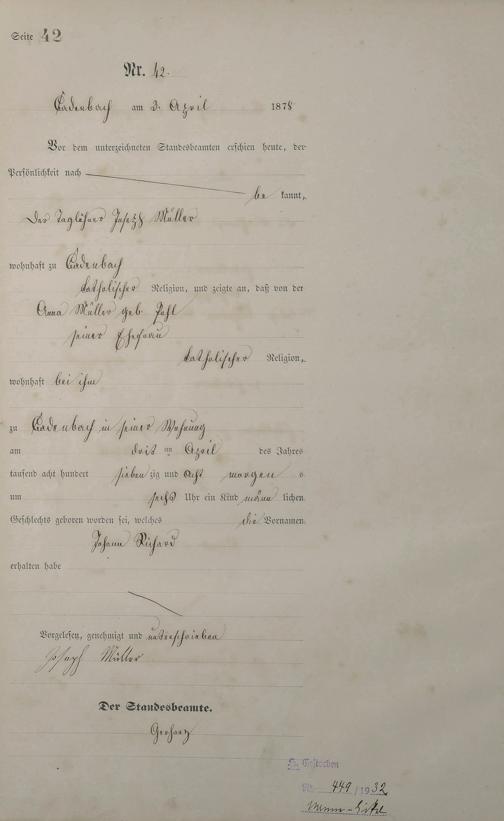 Seite 42
Nr. 42.
Cadenbach am 3. April 1878
Vor dem unterzeichneten Standesbeamten erschien heute, der
Persönlichkeit nach
be kannt,
Der Taglöhner Joseph Müller
wohnhaft zu Cadenbach
katholischer Religion, und zeigte an, daß von der
Anna Müller geb. Pohl
seiner Ehefrau
katholischer Religion,
wohnhaft bei ihm
zu Cadenbach in seiner Wohnung
am drit en April des Jahres
tausend acht hundert sieben zig und acht morgen s
um sechs Uhr ein Kind männ lichen
Geschlechts geboren worden sei, welches die Vornamen
Johann Richard
erhalten habe
Vorgelesen, genehmigt und unterschrieben
Joseph Müller
Der Standesbeamte.
Gestorben
Nr. 449/1932
Wanne-Eickel